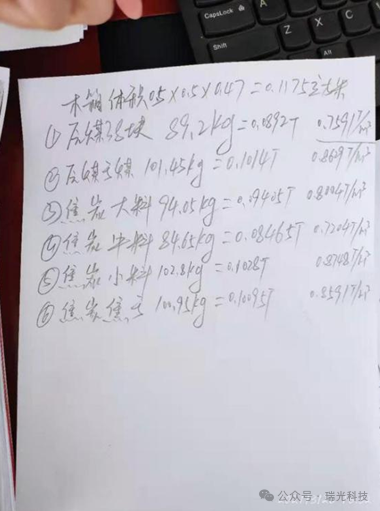 CapsLock
Shift
Ctrl
木箱体积0.5×0.5×0.47=0.1175立方米
① 煤块 89.2kg=0.0892T 0.7591T/m³
② 煤 煤 101.45kg=0.1014T 0.8629T/m³
③焦炭大料 94.05kg=0.09405T 0.8004T/m³
④焦炭中料 84.65kg=0.08465T 0.7204T/m³
⑤焦炭小料 102.8kg=0.1028T 0.8748T/m³
⑥焦炭焦 100.95kg=0.10095T 0.8591T/m³
公众号·瑞光科技